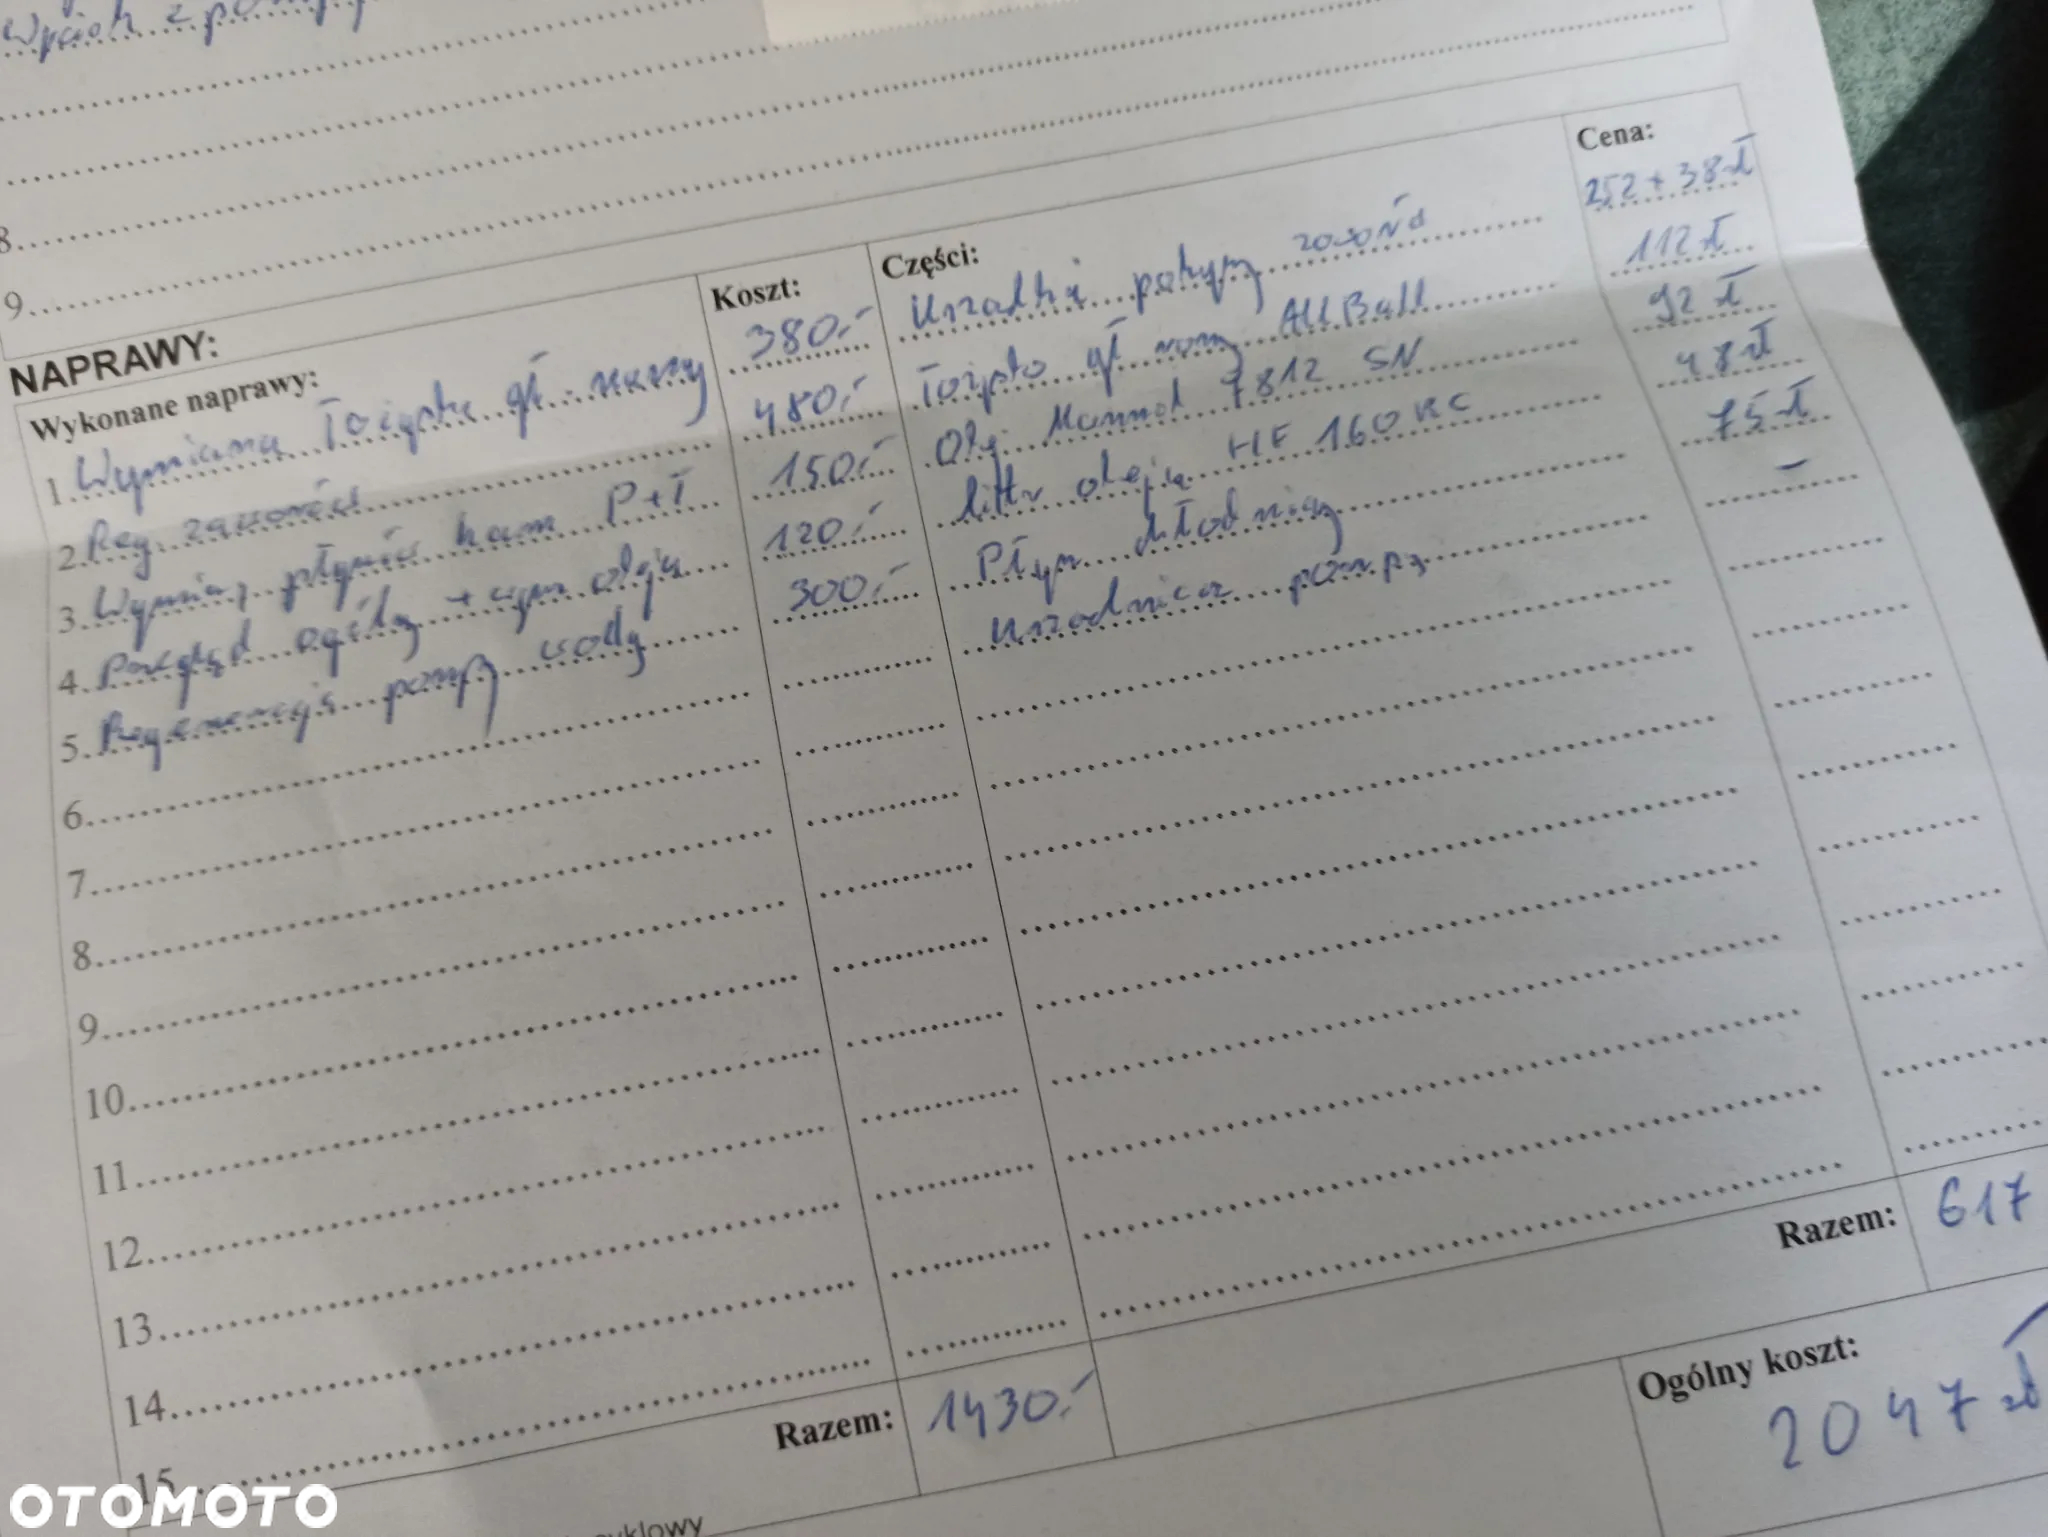 Wyciek z pomp
8.
9.
NAPRAWY:
Wykonane naprawy:
Koszt:
1. Wymiana Łożyska gł. ramy 380,-
2. Reg. zaworów 480,-
3. Wymiany płynów ham P+T 150,-
4. Przegląd ogólny + wym oleju 120,-
5. Regeneracja pompy wody 300,-
6.
7.
8.
9.
10.
11.
12.
13.
14.
15.
Razem: 1430,-
Części:
Cena:
Uszczelki pokryw zaworów 252 + 38 zł
Łożysko gł ramy All Ball 112 zł
Olej Mannol 7812 SN 92 zł
filtr oleju HF 160 RC 48 zł
Płyn chłodniczy 75 zł
Uszczelniacz pompy -
Razem: 617
Ogólny koszt:
2047 zł
cyklowy
OTOMOTO